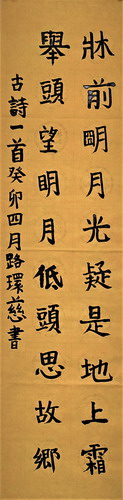 牀前明月光疑是地上霜
舉頭望明月低頭思故鄉
古詩一首癸卯四月路環慈書